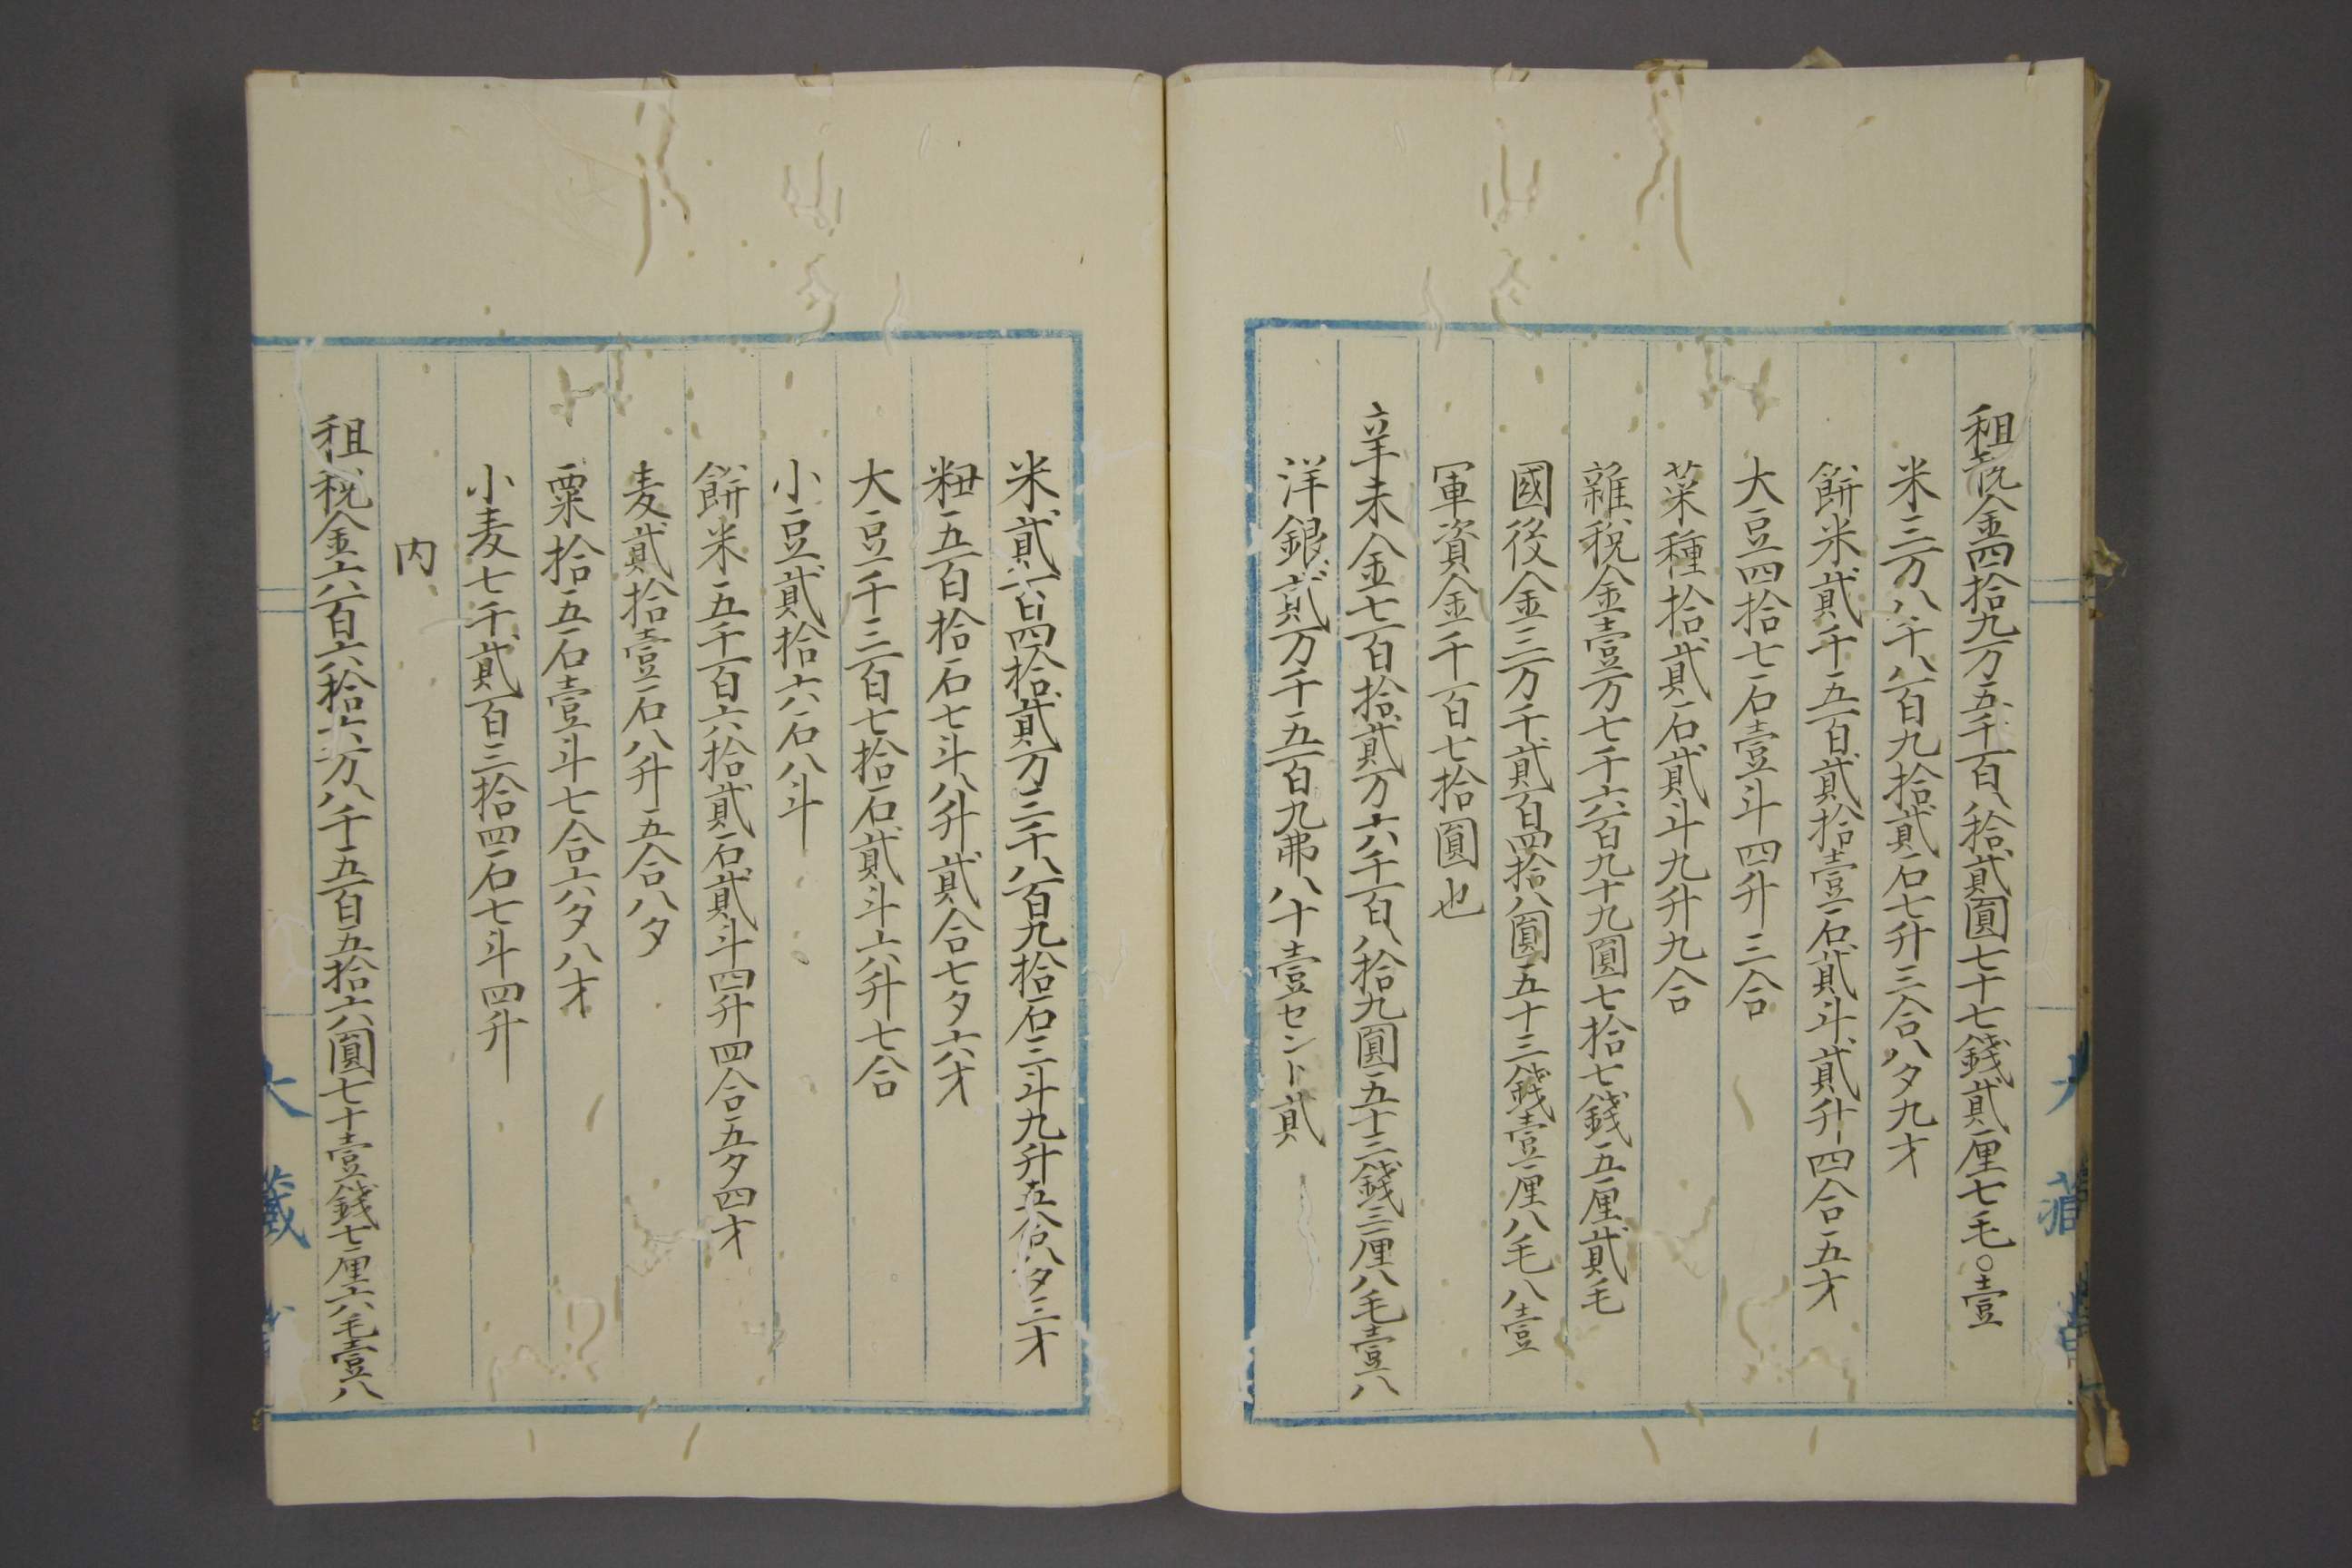 租税金四拾九万五千百八拾貳圓七十七錢貳厘七毛〇壹
米三万八千八百九拾貳石七升三合八夕九才
餅米貳千五百貳拾壹石貳斗貳升四合五才
大豆四拾七石壹斗四升三合
菜種拾貳石貳斗九升九合
雜税金壹万七千六百九十九圓七拾七錢五厘貳毛
國役金三万千貳百四拾八圓五十三錢壹厘八毛八壹
軍資金千百七拾圓也
辛未金七百拾貳万六千百八拾九圓五十三錢三厘八毛壹八
洋銀貳万千五百九弗八十壹セント貳
米貳百四拾貳万三千八百九拾石三斗九升五合八夕三才
籾五百拾石七斗八升貳合七夕六才
大豆千三百七拾石貳斗六升七合
小豆貳拾六石八斗
餅米五千百六拾貳石貳斗四升四合五夕四才
麦貳拾壹石八升五合八夕
粟拾五石壹斗七合六夕八才
小麦七千貳百三拾四石七斗四升
内
租税金六百六拾六万八千五百五拾六圓七十壹錢七厘六毛壹八
大藏